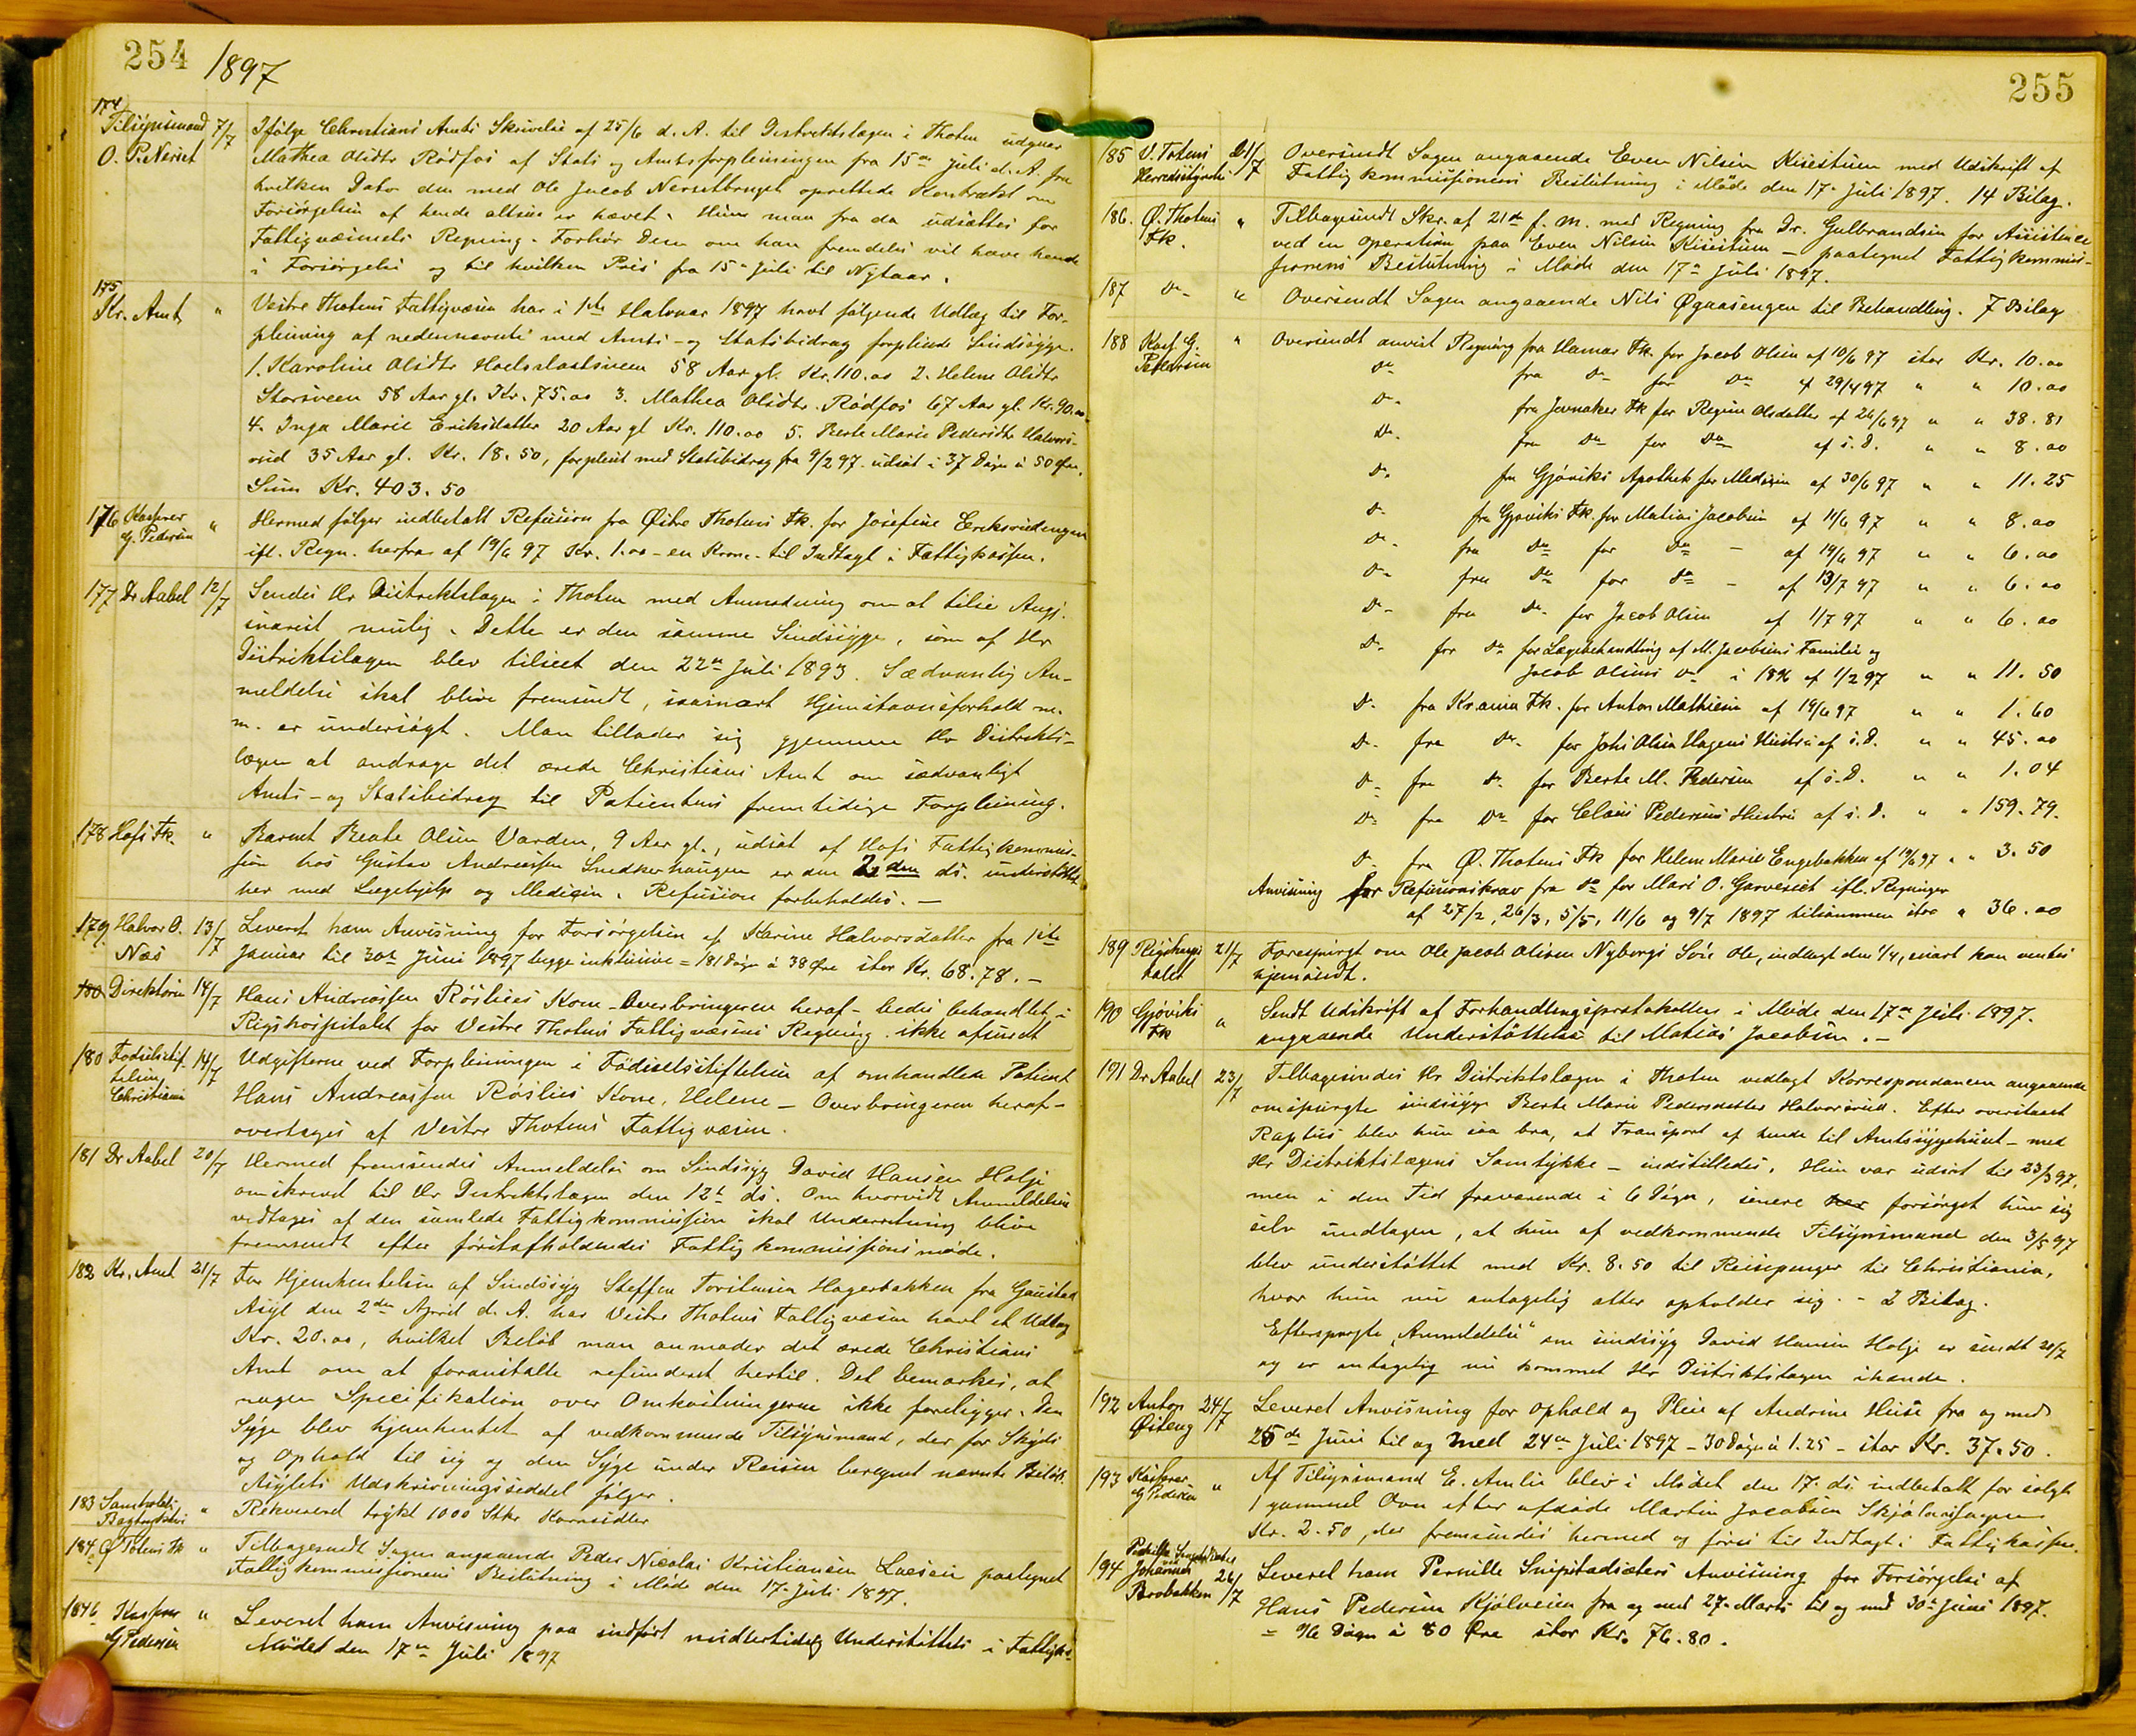 254 1897
174
Tilsynsmand 7/7 Ifølge Christians Amts Skrivelse af 25/6 d. A. til Distriktslægen i Thoten udgaar
O. P. Nerset Mathea Olsdtr Rødfos af Stats og Amtsforpleiningen fra 15de Juli d. A. fra
hvilken Dato den med Ole Jacob Nersetbraget oprettede Kontrakt om
Forsørgelsen af hende altsaa er hævet. Hun maa fra da udsættes for
Fattigvæsenets Regning. Forhør Dem om han fremdeles vil have hende
i Forsørgelse og til hvilken Pris fra 15de Juli til Nytaar.
175
Kr. Amt " Vestre Thotens Fattigvæsen har i 1ste Halvaar 1897 havt følgende Udlæg til For-
pleining af nedennævnte med Amts- og Statsbidrag forpleiede Sindssyge.
1. Karoline Olsdtr 58 Aar gl. Kr. 110.00 2. Helene Olsdtr
Storsveen 58 Aar gl. Kr. 75.00 3. Mathea Olsdtr. Rødfos 67 Aar gl. Kr. 90.00
4. Inga Marie Eriksdatter 20 Aar gl Kr. 110.00 5. Berte Marie Pedersdtr Halvors-
rud 35 Aar gl. Kr. 18.50, forpleiet med Statsbidrag fra 9/2 97. udsat i 37 Døgn à 50 Øre.
Sum Kr. 403.50
176 Kasserer G. Pedersen " Hermed følger indbetalt Refusion fra Østre Thotens Fk. for Josefine Eriksrudengen
ifl. Regn. herfra af 19/6 97 Kr. 1.00 - en Krone - til Indtægt i Fattigkassen.
177 Dr Aabel 12/7 Sendes Hr Distriktslægen i Thoten med Anmodning om at tilse Angj.
snarest mulig. Dette er den samme Sindssyge, som af Hr
Distriktslægen blev tilseet den 22de Juli 1893. Sædvanlig An-
meldelse skal blive fremsendt, saasnart Hjemstavnsforhold m.
m. er undersøgt. Man tillader sig gjennem Hr Distrikts-
lægen at andrage det ærede Christians Amt om sædvanligt
Amts- og Statsbidrag til Patientens fremtidige Forpleining.
178 Hofs Fk. " Barnet Beate Olsen Varden, 9 Aar gl., udsat af Hofs Fattigkommis-
sion hos Gustav Andreassen Snedkerhaugen er den 2den ds. understøttet
her med Lægehjelp og Medicin. Refusion forbeholdes. —
179. Halvor O. Næs 13/7 Leveret ham Anvisning for Forsørgelsen af Karine Halvorsdatter fra 1ste
Januar til 30te Juni 1897 begge inklusive = 181 Døgn à 38 Øre stor Kr. 68.78. —
180 Direktøren 14/7 Hans Andreassen Røslies Kone - Overbringeren heraf - bedes behandlet i
Rigshospitalet for Vestre Thotens Fattigvæsens Regning. ikke afsendt
180 Fødselsstiftelsen Christiania 14/7 Udgifterne ved Forpleiningen i Fødselsstiftelsen af omhandlede Patient
Hans Andreassen Røslies Kone, Helene — Overbringeren heraf —
overtages af Vestre Thotens Fattigvæsen.
181 Dr Aabel 20/7 Hermed fremsendes Anmeldelse om Sindssyg David Hansen Holje
omskrevet til Hr Distriktslægen den 12te ds. Om hvorvidt Anmeldelsen
vedtages af den samlede Fattigkommission skal Underretning blive
fremsendt efter førstafholdendes Fattigkommissionsmøde.
182 Kr. Amt 21/7 For Hjemhentelsen af Sindssyg Steffen Torstensen Hagerbakken fra Gaustad
Asyl den 2den April d. A. har Vestre Thotens Fattigvæsen havt et Udlæg
Kr. 20.00, hvilket Beløb man anmoder det ærede Christians
Amt om at foranstalte refunderet hertil. Det bemærkes, at
nogen Specifikation over Omkostningerne ikke foreligger. Den
Syge blev hjemhentet af vedkommende Tilsynsmand, der for Skyds
og Ophold til sig og den Syge under Reisen beregnet nævnte Beløb.
Asylets Udskrivningsseddel følger.
183 Samholds Bogtrykkeri " Rekvireret trykt 1000 Stkr Kornsedler
184 Ø Totens Fk " Tilbagesendt Sagen angaaende Peder Nicolai Kristiansen Laesen paategnet
Fattigkommissionens Beslutning i Møde den 17de Juli 1897.
184b Kasserer G Pedersen " Leveret ham Anvisning paa indført midlertidig Understøttelse i Fattigk.
Mødet den 17de Juli 1897
255
185 V. Totens Herredsstyrelse 21/7 Oversendt Sagen angaaende Even Nilsen Kisestuen med Udskrift af
Fattigkommissionens Beslutning i Møde den 17de Juli 1897. 14 Bilag.
186. Ø. Thotens Fk. " Tilbagesendt Skr. af 21de f. M. med Regning fra Dr. Gulbrandsen for Assistence
ved en Operation paa Even Nilsen Kisestuen — paategnet Fattigkommis-
sionens Beslutning i Møde den 17de Juli 1897.
187 Do- " Oversendt Sagen angaaende Nils Øgaasengen til Behandling. 7 Bilag
188 Kass. G. Pedersen " Oversendt anvist Regning fra Hamar Fk. for Jacob Olsen af 10/6 97 stor Kr. 10.00
Do fra Do- for Do af 29/4 97 " " 10.00
Do- fra Jevnaker Fk for Regine Olsdatter af 26/6 97 " " 38.81
Do. fra Do for Do af s. D. " " 8.00
Do. fra Gjøviks Apothek for Medicin af 30/6 97 " " 11.25
Do- fra Gjøviks Fk. for Matias Jacobsen af 11/6 97 " " 8.00
Do- fra Do for Do — af 19/6 97 " " 6.00
Do- fra Do for Do — af 13/7 97 " " 6.00
Do- fra Do. for Jacob Olsen af 1/7 97 " " 6.00
Do. for Do for Lægebehandling af M. Jacobsens Familie og
Jacob Olsens Do i 1896 af 1/2 97 " " 11.50
Do. fra Kr.ania Fk. for Anton Mathisen af 19/6 97 " " 1.60
Do. fra Do. for Johs Olsen Hagens Hustru af s. D. " " 45.00
Do- fra Do. for Berte M. Pedersen af s. D. " " 1.04
Do- fra Do for Claus Pedersens Hustru af s. D. " " 159.79.
Do. fra Ø. Thotens Fk for Helene Marie Engebakken af 19/6 97 " " 3.50
Anvisning for Refusionskrav fra Do for Mari O. Garveriet ifl. Regninger
af 27/2, 26/3, 5/5, 11/6 og 9/7 1897 tilsammen stor " 36.00
189 Rigshospitalet 21/7 Forespurgt om Ole Jacob Olsen Nyborgs Søn Ole, indlagt den 1/4, snart kan ventes
hjemsendt.
190 Gjøviks Fk " Sendt Udskrift af Forhandlingsprotokollen i Møde den 17de Juli 1897.
angaaende Understøttelse til Matias Jacobsen. —
191 Dr Aabel 23/7 Tilbagesendes Hr Distriktslægen i Thoten vedlagt Korrespondancen angaaende
omspurgte sindssyge Berte Marie Pedersdatter Halvorsrud. Efter overstaaet
Raptus blev hun saa bra, at Transport af hende til Amtssygehuset — med
Hr Distriktslægens Samtykke — indstilledes. Hun var udsat til 23/3 97,
men i den Tid fraværende i 6 Døgn, senere har forsørget hun sig
selv undtagen, at hun af vedkommende Tilsynsmand den 3/5 97
blev understøttet med Kr. 8.50 til Reisepenger til Christiania,
hvor hun nu antagelig atter opholder sig. - 2 Bilag.
Efterspurgte "Anmeldelse" om sindssyg David Hansen Holje er sendt 20/7
og er antagelig nu kommet Hr Distriktslægen ihænde.
192 Anton Østeng 24/7 Leveret Anvisning for Ophold og Pleie af Andrine Huse fra og med
25de Juni til og med 24de Juli 1897 - 30 Døgn à 1.25 - stor Kr. 37.50.
193 Kasserer G Pedersen " Af Tilsynsmand E. Amlie blev i Mødet den 17. ds indbetalt for solgt
1 gammel Ovn efter afdøde Martin Jacobsen
Kr. 2.50, der fremsendes hermed og føres til Indtægt i Fattigkassen.
194 Johannes Brobakken 26/7 Leveret ham Pernille Snipstadsæters Anvisning for Forsørgelse af
Hans Pedersen Kjølseien fra og med 27. Marts til og med 30te Juni 1897.
= 96 Døgn à 80 Øre stor Kr. 76.80.